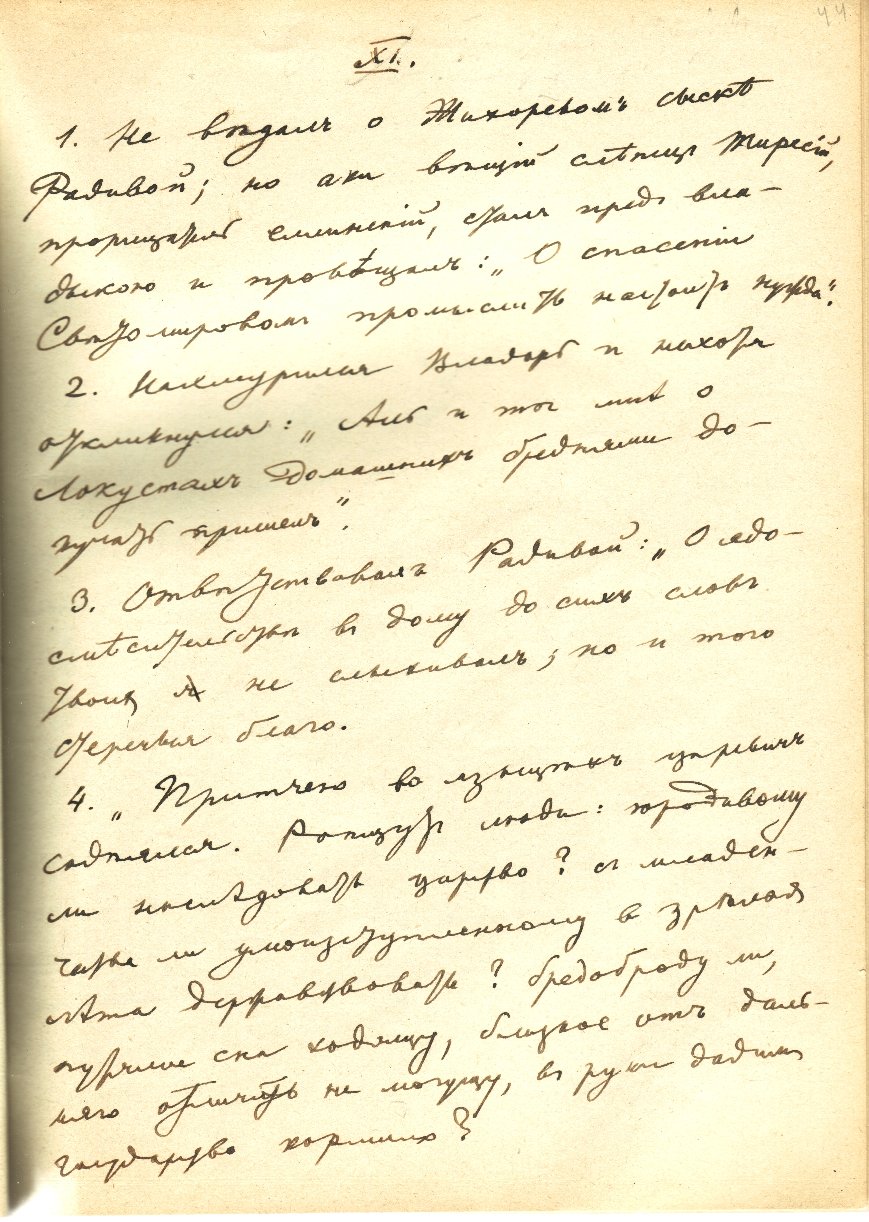 44
XI.
1. Не вѣдалъ о Жихоревомъ сыскѣ
Радивой; но аки вѣщій слѣпецъ Тиресій,
прорицатель еллинскій, сталъ предъ вла-
дыкою и провѣщалъ: „О спасеніи
Свѣтомировомъ промыслить настоитъ нужда“.
2. Нахмурился Владарь и нехотя
откликнулся: „Аль и ты мнѣ о
Локустахъ домашнихъ бреднями до-
кучать пришелъ“.
3. Отвѣтствовалъ Радивой: „О ядо-
смѣсительствѣ въ дому до сихъ словъ
твоихъ я не слыхивалъ; но и того
стеречься благо.
4. „Притчею во языцѣхъ царевичъ
содѣлался. Ропщутъ люди: юродивому
ли наслѣдовать царство? съ младен-
чества ли умоизступленному въ зрѣлая
лѣта державствовать? бредоброду ли,
путемъ сна ходящу, близкое отъ даль-
няго отличить не могущу, въ руки дадимъ
государство кормило?